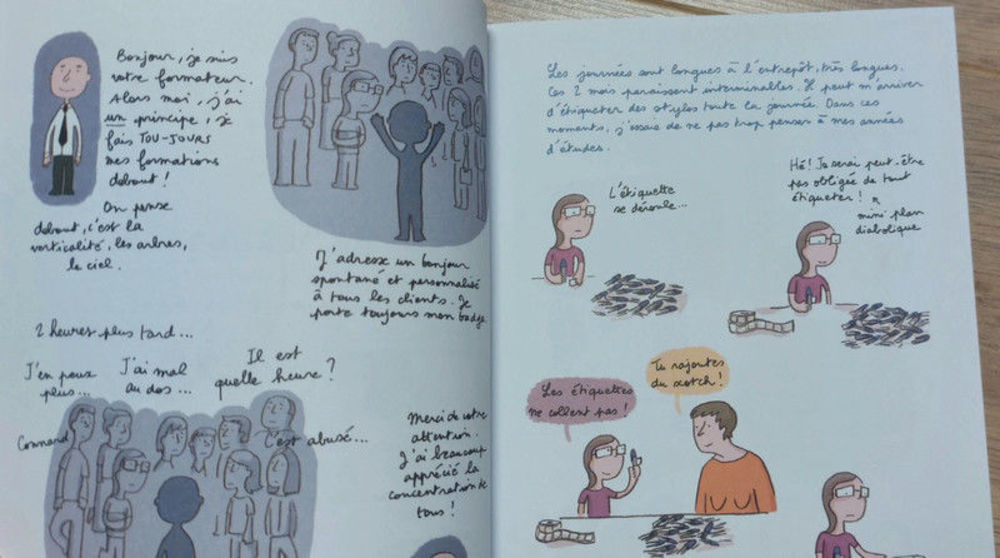 Bonjour, je suis
votre formateur.
Alors moi, j'ai
un principe, je
fais TOU-JOURS
mes formations
debout !
On pense
debout, c'est la
verticalité, les arbres,
le ciel.
J'adresse un bonjour
spontané et personnalisé
à tous les clients. Je
porte toujours mon badge
2 heures plus tard...
J'en peux
plus...
J'ai mal
au dos...
Il est
quelle heure ?
Connard
C'est abusé...
Merci de votre
attention.
J'ai beaucoup
apprécié la
concentration de
tous !
Les journées sont longues à l'entrepôt, très longues.
Ces 2 mois paraissent interminables. Il peut m'arriver
d'étiqueter des stylos toute la journée. Dans ces
moments, j'essaie de ne pas trop penser à mes années
d'études.
L'étiquette
se déroule...
Hé ! Je serai peut-être
pas obligée de tout
étiqueter !
mini plan
diabolique
Les étiquettes
ne collent pas !
Tu rajoutes
du scotch !